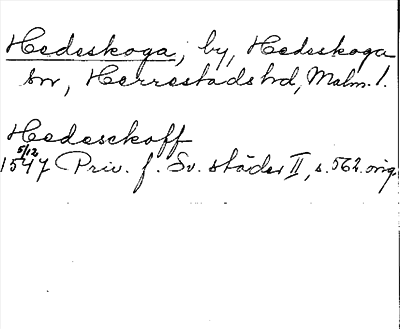 Hedeskoga, by, Hedeskoga
sn, Herrestads hd, Malm. l.
Hedesckoff
5/12
1547 Priv. f. Sv. städer II, s. 562. orig.